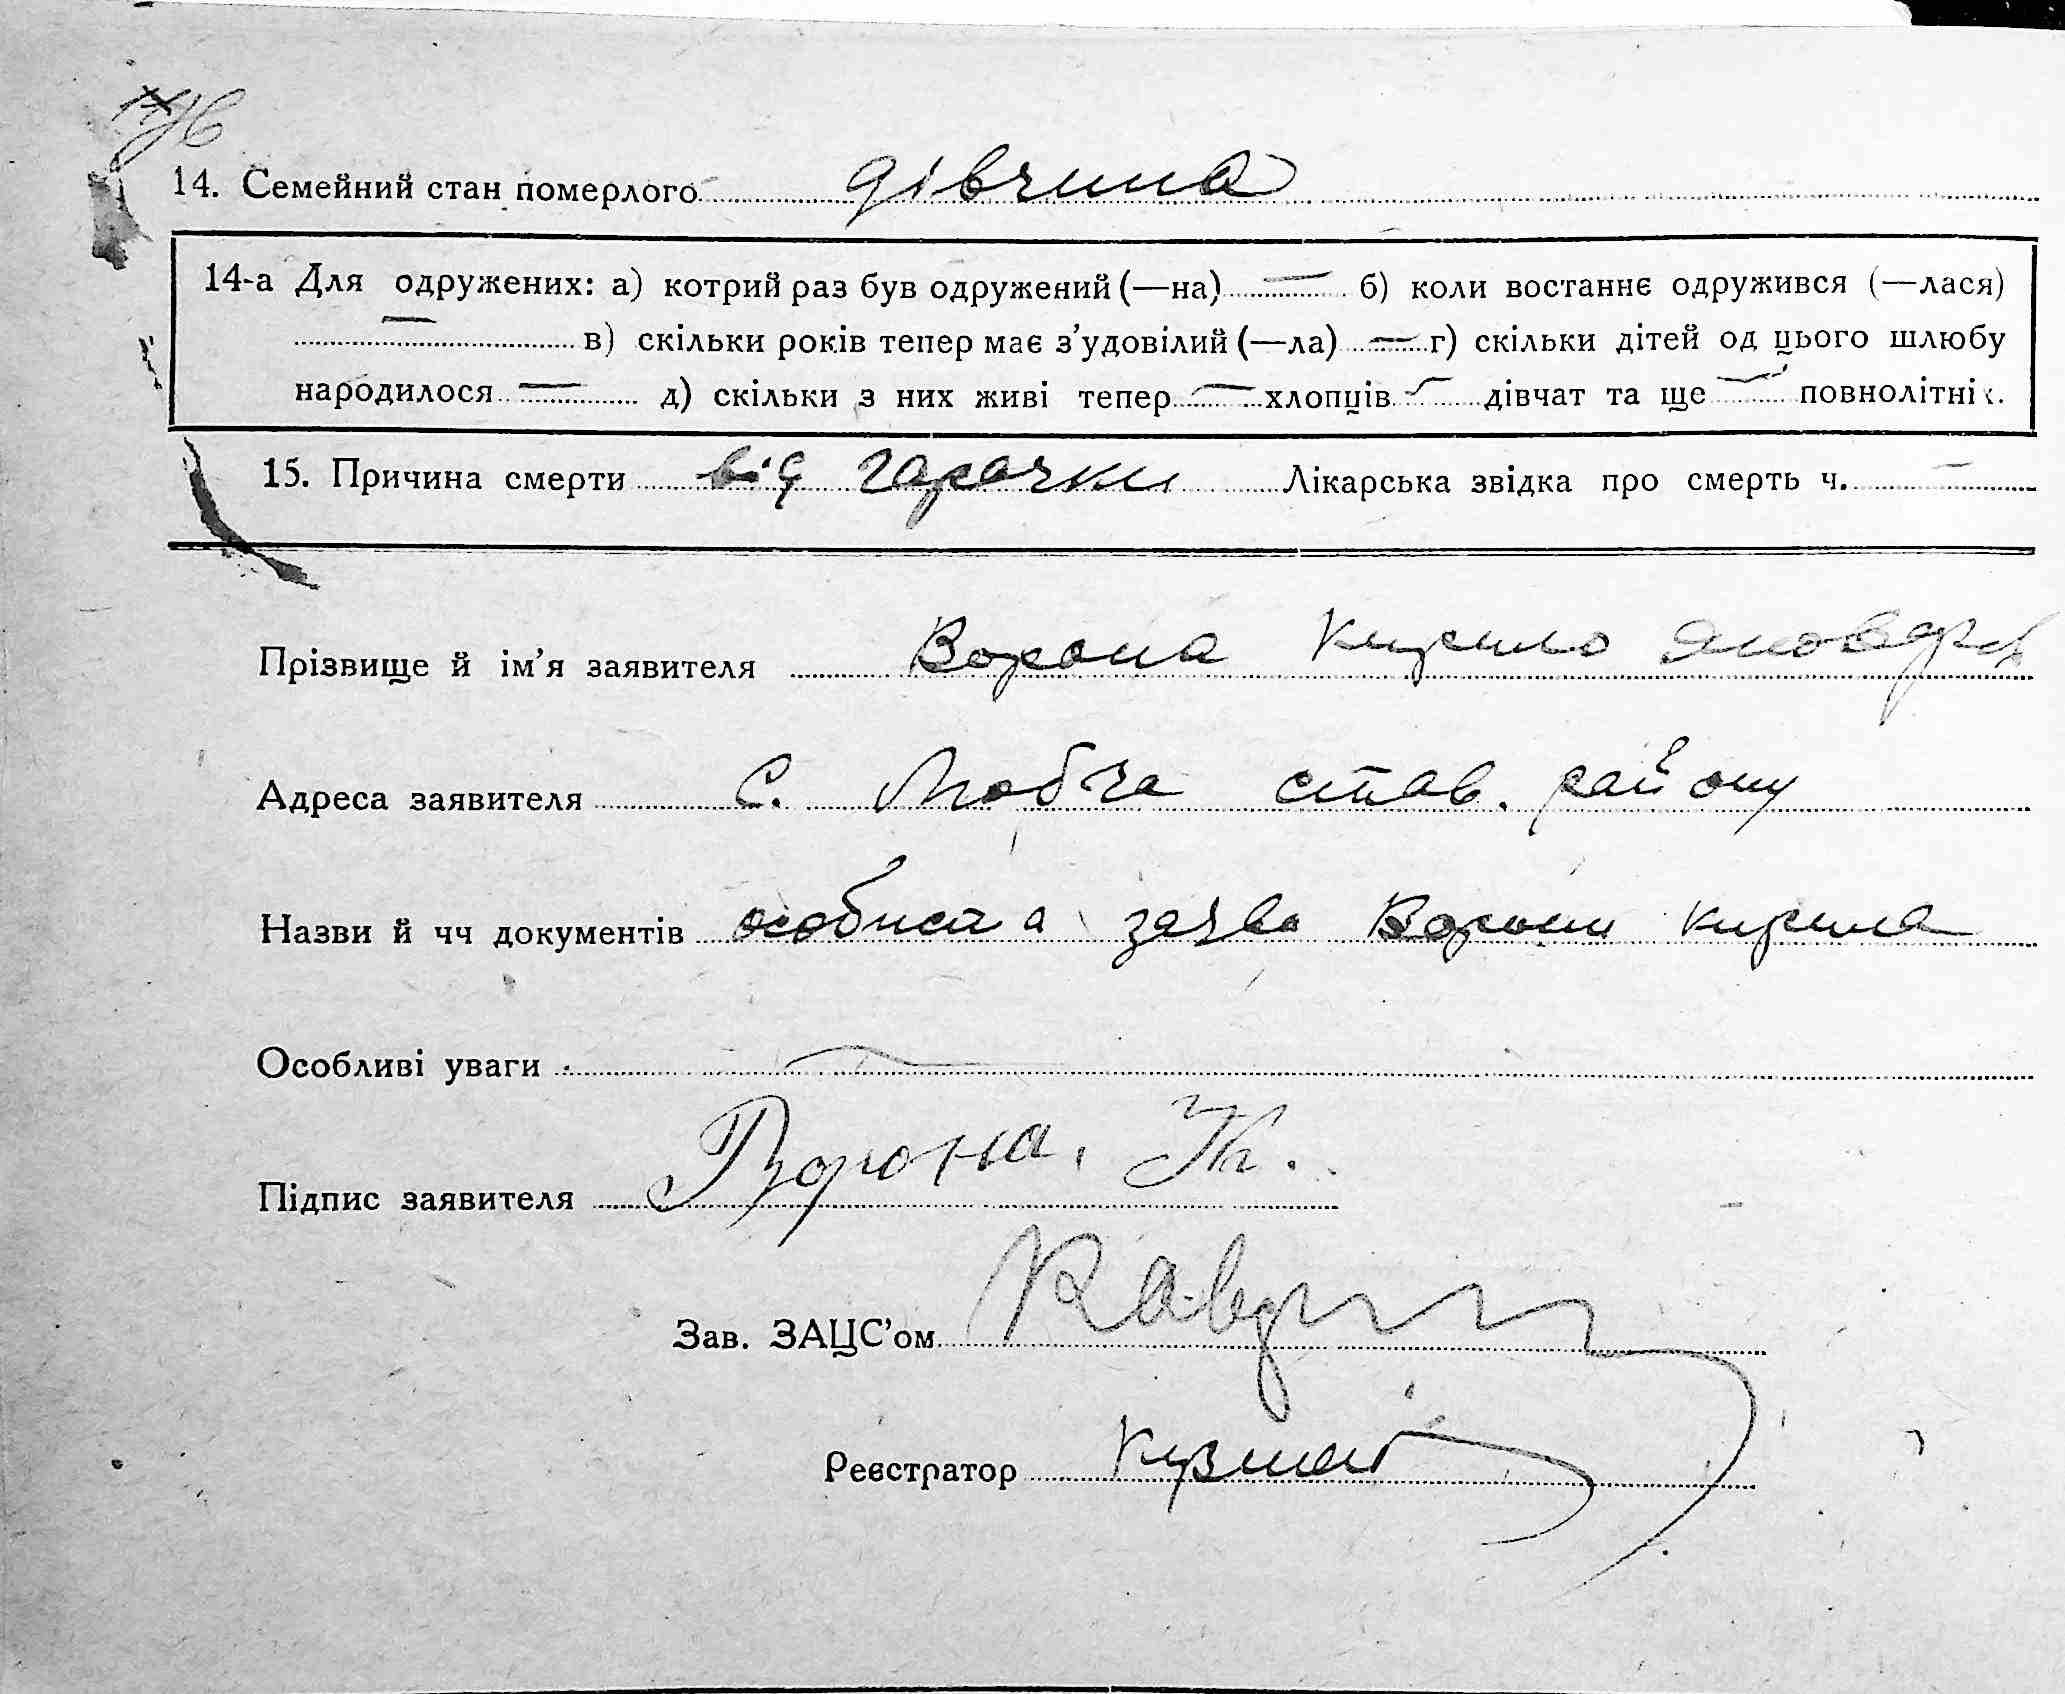 14. Семейний стан померлого дівчина
14-а Для одружених: а) котрий раз був одружений (—на) — б) коли востаннє одружився (—лася)
— в) скільки років тепер має з’удовілий (—ла) — г) скільки дітей од цього шлюбу
народилося — д) скільки з них живі тепер — хлопців — дівчат та ще — повнолітніх.
15. Причина смерти від гарачки Лікарська звідка про смерть ч. —
Прізвище й ім’я заявителя Ворона Кирило
Адреса заявителя С. Любча став. району
Назви й чч документів особиста заява Ворони Кирила
Особливі уваги —
Підпис заявителя Ворона. К.
Зав. ЗАЦС’ом
Реєстратор